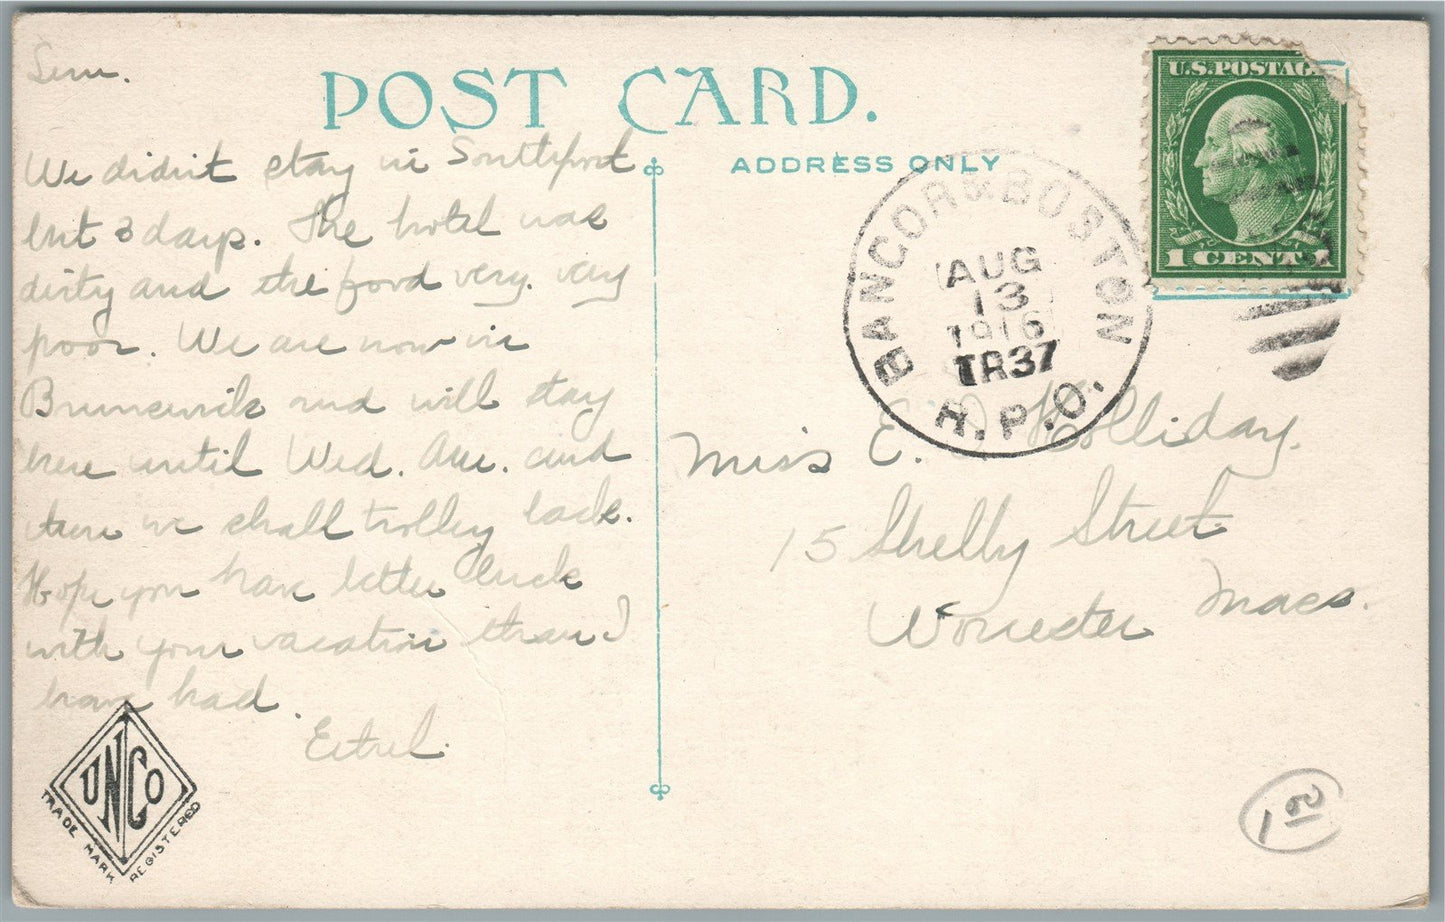 Sun.
We didn't stay in Southport
but 3 days. The hotel was
dirty and the food very, very
poor. We are now in
Brunswick and will stay
here until Wed. Aw. and
then we shall trolley back.
Hope you have better luck
with your vacation than I
have had.
Ethel.
UNCO
TRADE MARK REGISTERED
POST CARD.
ADDRESS ONLY
BANGOR & BOSTON
AUG
13
1916
TR37
R.P.O.
U.S. POSTAG
1 CENT 1
Miss E. Holliday.
15 Shelly Street
Worcester Mass.
1 00